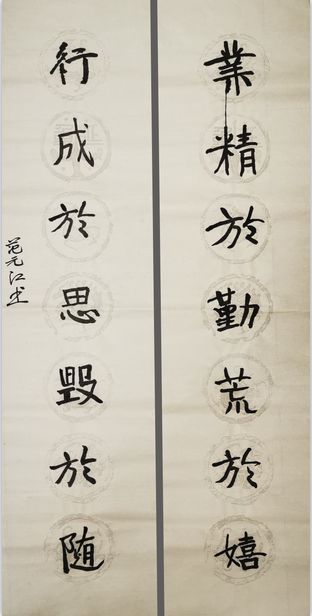 業精於勤荒於嬉
行成於思毁於随
范元江书